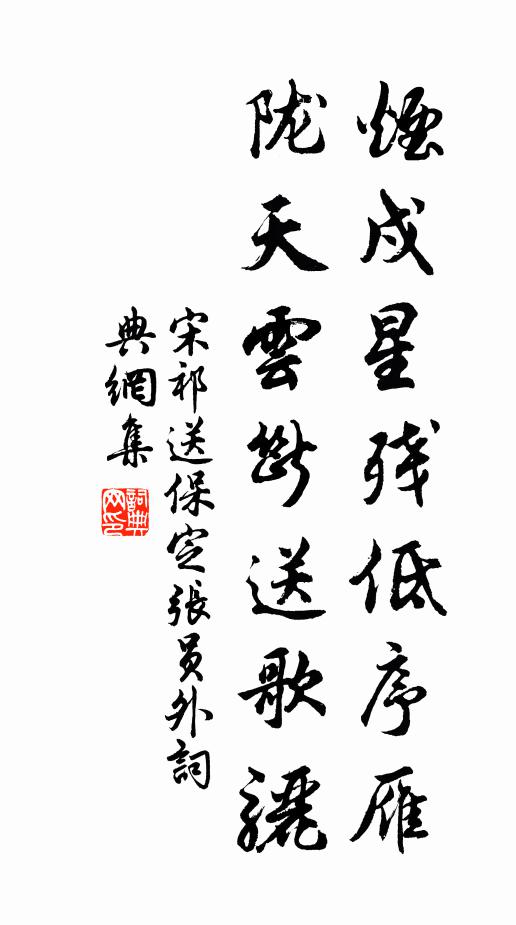 煙戍星殘低序雁
陇天雲斷送歌驪
宋祁送保定張員外詞
典網集
詞典
网印